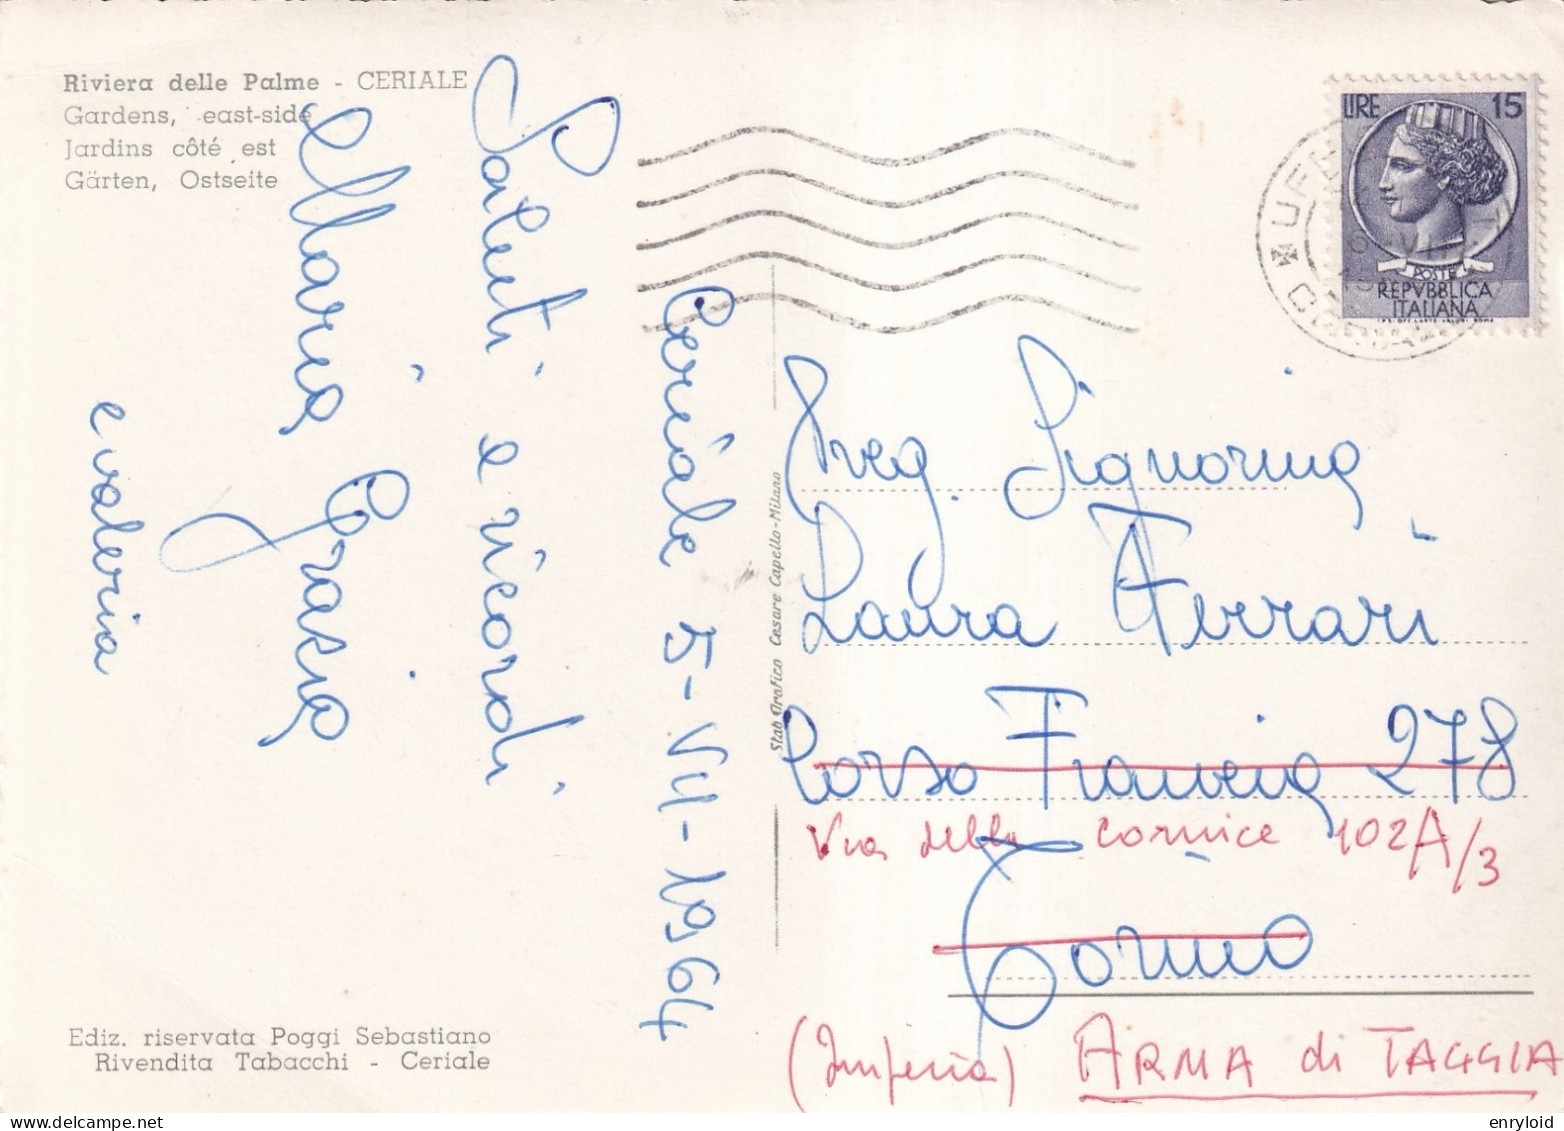 Riviera delle Palme - CERIALE
Gardens, east-side
Jardins côté est
Gärten, Ostseite
Ceriale 5-VII-1964
Saluti e ricordi
Maria Grazia
e valeria
Ediz. riservata Poggi Sebastiano
Rivendita Tabacchi - Ceriale
Stab Grafico Cesare Capello-Milano
LIRE 15
POSTE
REPVBBLICA
ITALIANA
Preg. Signorina
Laura Ferrari
Corso Francia 278
Via della Cornice 102A/3
Torino
(Imperia) ARMA di TAGGIA
delcampe.net
enryloid